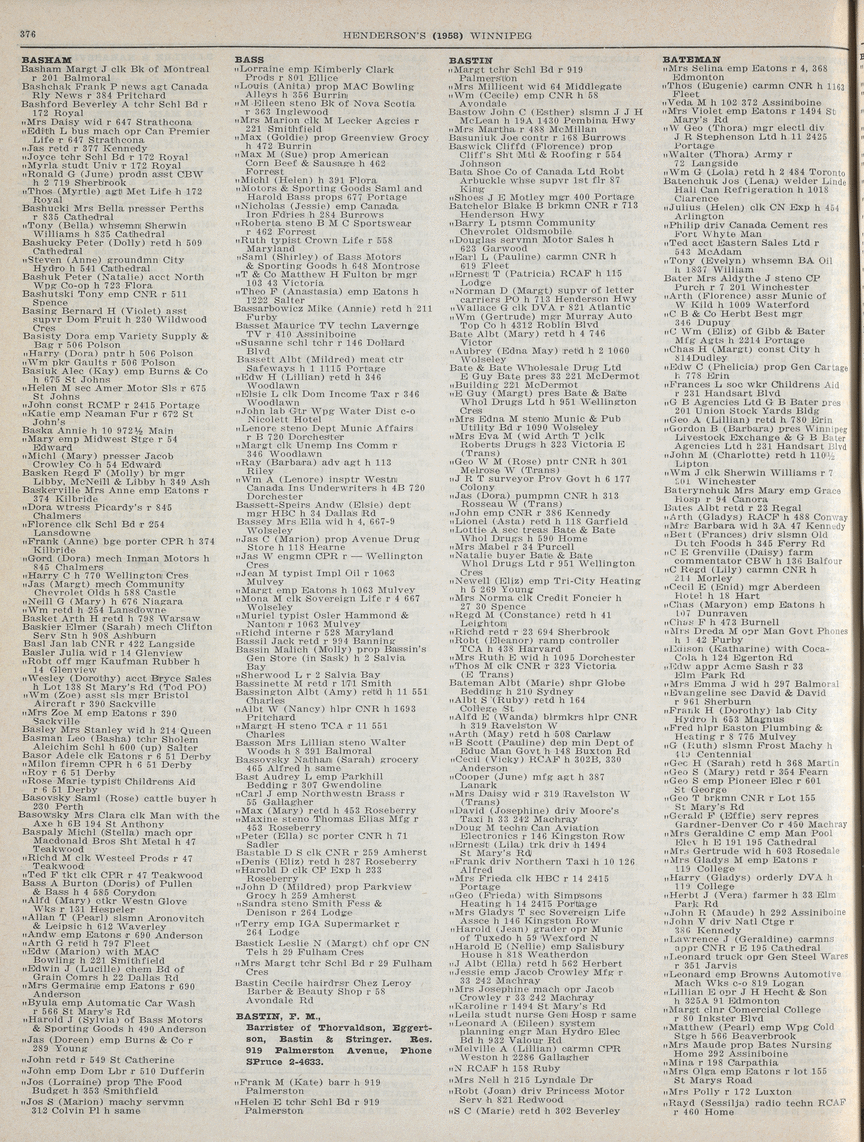 376
HENDERSON'S (1958) WINNIPEG
BASHAM
Basham Margt J clk Bk of Montreal
r 201 Balmoral
Bashchak Frank P news agt Canada
Rly News r 384 Pritchard
Bashford Beverley A tchr Schl Bd r
172 Royal
"Mrs Daisy wid r 647 Strathcona
"Edith L bus mach opr Can Premier
Life r 647 Strathcona
"Jas retd r 377 Kennedy
"Joyce tchr Schl Bd r 172 Royal
"Myrla studt Univ r 172 Royal
"Ronald G (June) prodn asst CBW
h 2 719 Sherbrook
"Thos (Myrtle) agt Met Life h 172
Royal
Bashucki Mrs Bella presser Perths
r 835 Cathedral
"Tony (Bella) whsemn Sherwin
Williams h 835 Cathedral
Bashucky Peter (Dolly) retd h 509
Cathedral
"Steven (Anne) groundmn City
Hydro h 541 Cathedral
Bashuk Peter (Natalie) acct North
Wpg Co-op h 723 Flora
Bashutski Tony emp CNR r 511
Spence
Basing Bernard H (Violet) asst
supvr Dom Fruit h 230 Wildwood
Cres
Basisty Dora emp Variety Supply &
Bag r 506 Polson
"Harry (Dora) pntr h 506 Polson
"Wm pkr Gaults r 506 Polson
Basiuk Alec (Kay) emp Burns & Co
h 675 St Johns
"Helen M sec Amer Motor Sls r 675
St Johns
"John const RCMP r 2415 Portage
"Katie emp Neaman Fur r 672 St
John's
Baska Annie h 10 972½ Main
"Mary emp Midwest Stge r 54
Edward
"Michl (Mary) presser Jacob
Crowley Co h 54 Edward
Basken Regd F (Molly) br mgr
Libby, McNeill & Libby h 349 Ash
Baskerville Mrs Anne emp Eatons r
374 Kilbride
"Dora wtress Picardy's r 845
Chalmers
"Florence clk Schl Bd r 254
Lansdowne
"Frank (Anne) bge porter CPR h 374
Kilbride
"Gord (Dora) mech Inman Motors h
845 Chalmers
"Harry C h 770 Wellington Cres
"Jas (Margt) mech Community
Chevrolet Olds h 588 Castle
"Neill G (Mary) h 676 Niagara
"Wm retd h 254 Lansdowne
Basket Arth H retd h 798 Warsaw
Baskier Elmer (Sarah) mech Clifton
Serv Stn h 908 Ashburn
Basl Jan lab CNR r 422 Langside
Basler Julia wid r 14 Glenview
"Robt off mgr Kaufman Rubber h
14 Glenview
"Wesley (Dorothy) acct Bryce Sales
h Lot 138 St Mary's Rd (Tod PO)
"Wm (Zoe) asst sls mgr Bristol
Aircraft r 390 Sackville
"Mrs Zoe M emp Eatons r 390
Sackville
Basley Mrs Stanley wid h 214 Queen
Basman Leo (Basha) tchr Sholem
Aleichim Schl h 600 (up) Salter
Basor Adele clk Eatons r 6 51 Derby
"Milon firemn CPR h 6 51 Derby
"Roy r 6 51 Derby
"Rose Marie typist Childrens Aid
r 6 51 Derby
Basovsky Saml (Rose) cattle buyer h
230 Perth
Basowsky Mrs Clara clk Man with the
Axe h 6B 194 St Anthony
Baspaly Michl (Stella) mach opr
Macdonald Bros Sht Metal h 47
Teakwood
"Richd M clk Westeel Prods r 47
Teakwood
"Ted F tkt clk CPR r 47 Teakwood
Bass A Burton (Doris) of Pullen
& Bass h 4 585 Corydon
"Alfd (Mary) ctkr Westn Glove
Wks r 131 Hespeler
"Allan T (Pearl) slsmn Aronovitch
& Leipsic h 612 Waverley
"Andw emp Eatons r 690 Anderson
"Arth G retd h 797 Fleet
"Edw (Marion) with MAC
Bowling h 221 Smithfield
"Edwin J (Lucille) chem Bd of
Grain Comrs h 22 Dallas Rd
"Mrs Germaine emp Eatons r 690
Anderson
"Byula emp Automatic Car Wash
r 566 St Mary's Rd
"Harold J (Sylvia) of Bass Motors
& Sporting Goods h 490 Anderson
"Jas (Doreen) emp Burns & Co r
289 Young
"John retd r 549 St Catherine
"John emp Dom Lbr r 510 Dufferin
"Jos (Lorraine) prop The Food
Budget h 353 Smithfield
"Jos S (Marion) machy servmn
312 Colvin Pl h same
BASS
"Lorraine emp Kimberly Clark
Prods r 801 Ellice
"Louis (Anita) prop MAC Bowling
Alleys h 356 Burrin
"M Eileen steno Bk of Nova Scotia
r 363 Inglewood
"Mrs Marion clk M Lecker Agcies r
221 Smithfield
"Max (Goldie) prop Greenview Grocy
h 472 Burrin
"Max M (Sue) prop American
Corn Beef & Sausage h 462
Forrest
"Michl (Helen) h 391 Flora
"Motors & Sporting Goods Saml and
Harold Bass props 677 Portage
"Nicholas (Jessie) emp Canada
Iron Fdries h 284 Burrows
"Roberta steno B M C Sportswear
r 462 Forrest
"Ruth typist Crown Life r 558
Maryland
"Saml (Shirley) of Bass Motors
& Sporting Goods h 648 Montrose
"T & Co Matthew H Fulton br mgr
103 43 Victoria
"Theo F (Anastasia) emp Eatons h
1222 Salter
Bassarbowicz Mike (Annie) retd h 211
Furby
Basset Maurice TV techn Lavernge
TV r 410 Assiniboine
"Susanne schl tchr r 146 Dollard
Blvd
Bassett Albt (Mildred) meat ctr
Safeways h 1 1115 Portage
"Edw H (Lillian) retd h 346
Woodlawn
"Elsie L clk Dom Income Tax r 346
Woodlawn
"John lab Gtr Wpg Water Dist c-o
Nicolett Hotel
"Lenore steno Dept Munic Affairs
r B 720 Dorchester
"Margt clk Unemp Ins Comm r
346 Woodlawn
"Ray (Barbara) adv agt h 113
Riley
"Wm A (Lenore) insptr Westn
Canada Ins Underwriters h 4B 720
Dorchester
Bassett-Speirs Andw (Elsie) dept
mgr HBC h 34 Dallas Rd
Bassey Mrs Ella wid h 4, 667-9
Wolseley
"Jas C (Marion) prop Avenue Drug
Store h 118 Hearne
"Jas W engmn CPR r — Wellington
Cres
"Jean M typist Impl Oil r 1063
Mulvey
"Margt emp Eatons h 1063 Mulvey
"Mona M clk Sovereign Life r 4 667
Wolseley
"Muriel typist Osler Hammond &
Nanton r 1063 Mulvey
"Richd interne r 528 Maryland
Bassil Jack retd r 994 Banning
Bassin Malich (Molly) prop Bassin's
Gen Store (in Sask) h 2 Salvia
Bay
"Sherwood L r 2 Salvia Bay
Bassinette M retd r 171 Smith
Bassington Albt (Amy) retd h 11 551
Charles
"Albt W (Nancy) hlpr CNR h 1693
Pritchard
"Margt H steno TCA r 11 551
Charles
Basson Mrs Lillian steno Walter
Woods h 8 391 Balmoral
Bassovsky Nathan (Sarah) grocery
465 Alfred h same
Bast Audrey L emp Parkhill
Bedding r 307 Gwendoline
"Carl J emp Northwestn Brass r
55 Gallagher
"Max (Mary) retd h 453 Roseberry
"Maxine steno Thomas Elias Mfg r
453 Roseberry
"Peter (Ella) sc porter CNR h 71
Sadler
Bastable D S clk CNR r 259 Amherst
"Denis (Eliz) retd h 287 Roseberry
"Harold D clk CP Exp h 233
Roseberry
"John D (Mildred) prop Parkview
Grocy h 259 Amherst
"Sandra steno Smith Fess &
Denison r 264 Lodge
"Terry emp IGA Supermarket r
264 Lodge
Bastick Leslie N (Margt) chf opr CN
Tels h 29 Fulham Cres
"Mrs Margt tchr Schl Bd r 29 Fulham
Cres
Bastin Cecile hairdrsr Chez Leroy
Barber & Beauty Shop r 58
Avondale Rd
BASTIN, F. M.,
Barrister of Thorvaldson, Eggert-
son, Bastin & Stringer. Res.
919 Palmerston Avenue, Phone
SPruce 2-4633.
"Frank M (Kate) barr h 919
Palmerston
"Helen E tchr Schl Bd r 919
Palmerston
BASTIN
"Margt tchr Schl Bd r 919
Palmerston
"Mrs Millicent wid 64 Middlegate
"Wm (Cecile) emp CNR h 58
Avondale
Bastow John C (Esther) slsmn J J H
McLean h 19A 1430 Pembina Hwy
"Mrs Martha r 488 McMillan
Basuniuk Joe contr r 168 Burrows
Baswick Cliffd (Florence) prop
Cliff's Sht Mtl & Roofing r 554
Johnson
Bata Shoe Co of Canada Ltd Robt
Arbuckle whse supvr 1st flr 87
King
"Shoes J E Motley mgr 400 Portage
Batchelor Blake B brkmn CNR r 713
Henderson Hwy
"Barry L ptsmn Community
Chevrolet Oldsmobile
"Douglas servmn Motor Sales h
623 Garwood
"Earl L (Pauline) carmn CNR h
619 Fleet
"Ernest T (Patricia) RCAF h 115
Lodge
"Norman D (Margt) supvr of letter
carriers PO h 713 Henderson Hwy
"Wallace G clk DVA r 821 Atlantic
"Wm (Gertrude) mgr Murray Auto
Top Co h 4312 Roblin Blvd
Bate Albt (Mary) retd h 4 746
Victor
"Aubrey (Edna May) retd h 2 1060
Wolseley
Bate & Bate Wholesale Drug Ltd
E Guy Bate pres 83 221 McDermot
"Building 221 McDermot
"E Guy (Margt) pres Bate & Bate
Whol Drugs Ltd h 951 Wellington
Cres
"Mrs Edna M steno Music & Pub
Utility Bd r 1090 Wolseley
"Mrs Eva M (wid Arth T )clk
Roberts Drugs h 323 Victoria E
(Trans)
"Geo W M (Rose) pntr CNR h 301
Melrose W (Trans)
"J R T surveyor Prov Govt h 6 177
Colony
"Jas (Dora) pumpmn CNR h 313
Rosseau W (Trans)
"John emp CNR r 386 Kennedy
"Lionel (Asta) retd h 118 Garfield
"Lottie A sec treas Bate & Bate
Whol Drugs h 590 Home
"Mrs Mabel r 34 Purcell
"Natalie buyer Bate & Bate
Whol Drugs Ltd r 951 Wellington
Cres
"Newell (Eliz) emp Tri-City Heating
h 5 269 Young
"Mrs Norma clk Credit Foncier h
27 30 Spence
"Regd M (Constance) retd h 41
Leighton
"Richd retd r 23 694 Sherbrook
"Robt (Eleanor) ramp controller
TCA h 438 Harvard
"Mrs Ruth E wid h 1095 Dorchester
"Thos M clk CNR r 323 Victoria
(E Trans)
Bateman Albt (Marie) shpr Globe
Bedding h 210 Sydney
"Albt S (Ruby) retd h 164
College St
"Alfd E (Wanda) blrmkrs hlpr CNR
h 319 Ravelston W
"Arth (Mary) retd h 508 Carlaw
"B Scott (Pauline) dep min Dept of
Educ Man Govt h 148 Buxton Rd
"Cecil (Vicky) RCAF h 302B, 330
Anderson
"Cooper (June) mfg agt h 387
Lanark
"Mrs Daisy wid r 319 Ravelston W
(Trans)
"David (Josephine) driv Moore's
Taxi h 33 242 Machray
"Doug M techn Can Aviation
Electronics r 146 Kingston Row
"Ernest (Lila) trk driv h 1494
St Mary's Rd
"Frank driv Northern Taxi h 10 126
Alfred
"Mrs Frieda clk HBC r 14 2415
Portage
"Geo (Frieda) with Simpsons
Heating h 14 2415 Portage
"Mrs Gladys T sec Sovereign Life
Assce h 146 Kingston Row
"Harold (Jean) grader opr Munic
of Tuxedo h 59 Wexford N
"Harold E (Nellie) emp Salisbury
House h 818 Weatherdon
"J Albt (Ella) retd h 562 Herbert
"Jessie emp Jacob Crowley Mfg r
33 242 Machray
"Mrs Josephine mach opr Jacob
Crowley r 33 242 Machray
"Karoline r 1494 St Mary's Rd
"Leila studt nurse Gen Hosp r same
"Leonard A (Eileen) system
planning engr Man Hydro Elec
Bd h 932 Valour Rd
"Melville A (Lillian) carmn CPR
Weston h 2286 Gallagher
"N RCAF h 158 Ruby
"Mrs Nell h 215 Lyndale Dr
"Robt (Joan) driv Princess Motor
Serv h 821 Redwood
"S C (Marie) retd h 302 Beverley
BATEMAN
"Mrs Selina emp Eatons r 4, 368
Edmonton
"Thos (Eugenie) carmn CNR h 1163
Fleet
"Veda M h 102 372 Assiniboine
"Mrs Violet emp Eatons r 1494 St
Mary's Rd
"W Geo (Thora) mgr electl div
J R Stephenson Ltd h 11 2425
Portage
"Walter (Thora) Army r
72 Langside
"Wm G (Lola) retd h 2 484 Toronto
Batenchuk Jos (Lena) welder Linde
Hall Can Refrigeration h 1018
Clarence
"Julius (Helen) clk CN Exp h 454
Arlington
"Philip driv Canada Cement res
Fort Whyte Man
"Ted acct Eastern Sales Ltd r
543 McAdam
"Tony (Evelyn) whsemn BA Oil
h 1837 William
Bater Mrs Aldythe J steno CP
Purch r 7 201 Winchester
"Arth (Florence) assr Munic of
W Kild h 1009 Waterford
"C B & Co Herbt Best mgr
346 Dupuy
"C Wm (Eliz) of Gibb & Bater
Mfg Agts h 2214 Portage
"Chas H (Margt) const City h
814Dudley
"Edw C (Phelicia) prop Gen Cartage
h 778 Erin
"Frances L soc wkr Childrens Aid
r 231 Handsart Blvd
"G B Agencies Ltd G B Bater pres
201 Union Stock Yards Bldg
"Geo A (Lillian) retd h 780 Erin
"Gordon B (Barbara) pres Winnipeg
Livestock Exchange & G B Bater
Agencies Ltd h 231 Handsart Blvd
"John M (Charlotte) retd h 110½
Lipton
"Wm J clk Sherwin Williams r 7
201 Winchester
Baterynchuk Mrs Mary emp Grace
Hosp r 94 Canora
Bates Albt retd r 23 Regal
"Arth (Gladys) RACF h 488 Conway
"Mrs Barbara wid h 3A 47 Kennedy
"Bert (Frances) driv slsmn Old
Dutch Foods h 345 Ferry Rd
"C E Grenville (Daisy) farm
commentator CBW h 136 Balfour
"C Regd (Lily) carmn CNR h
214 Morley
"Cecil E (Enid) mgr Aberdeen
Hotel h 18 Hart
"Chas (Maryon) emp Eatons h
107 Dunraven
"Chas F h 473 Burnell
"Mrs Dreda M opr Man Govt Phones
h 1 42 Furby
"Edison (Katharine) with Coca-
Cola h 124 Egerton Rd
"Edw appr Acme Sash r 33
Elm Park Rd
"Mrs Emma J wid h 297 Balmoral
"Evangeline sec David & David
r 961 Sherburn
"Frank H (Dorothy) lab City
Hydro h 653 Magnus
"Fred hlpr Easton Plumbing &
Heating r 8 775 Mulvey
"G (Ruth) slsmn Frost Machy h
419 Centennial
"Geo H (Sarah) retd h 368 Martin
"Geo S (Mary) retd r 354 Fearn
"Geo S emp Pioneer Elec r 601
St George
"Geo T brkmn CNR r Lot 155
St Mary's Rd
"Gerald F (Effie) serv repres
Gardner-Denver Co r 450 Machray
"Mrs Geraldine C emp Man Pool
Elev h E 191 195 Cathedral
"Mrs Gertrude wid h 603 Rosedale
"Mrs Gladys M emp Eatons r
119 College
"Harry (Gladys) orderly DVA h
119 College
"Herbt J (Vera) farmer h 33 Elm
Park Rd
"John R (Maude) h 292 Assiniboine
"John V driv Natl Ctge r
386 Kennedy
"Lawrence J (Geraldine) carmns
appr CNR r E 195 Cathedral
"Leonard truck opr Gen Steel Wares
r 351 Jarvis
"Leonard emp Browns Automotive
Mach Wks c-o 819 Logan
"Lillian E opr J H Hecht & Son
h 325A 91 Edmonton
"Margt clnr Comercial College
r 80 Inkster Blvd
"Matthew (Pearl) emp Wpg Cold
Stge h 566 Beaverbrook
"Mrs Maude prop Bates Nursing
Home 292 Assiniboine
"Mina r 198 Carpathia
"Mrs Olga emp Eatons r lot 155
St Marys Road
"Mrs Polly r 172 Luxton
"Rayd (Sessilja) radio techn RCAF
r 460 Home